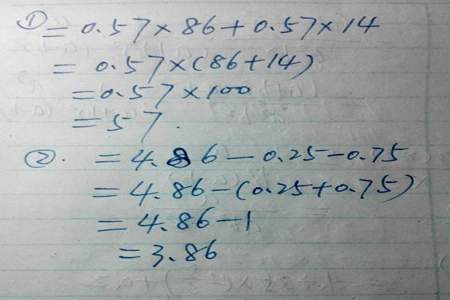 ① = 0.57×86+0.57×14
= 0.57×(86+14)
=0.57×100
=57.
②. =4.86-0.25-0.75
=4.86-(0.25+0.75)
=4.86-1
=3.86